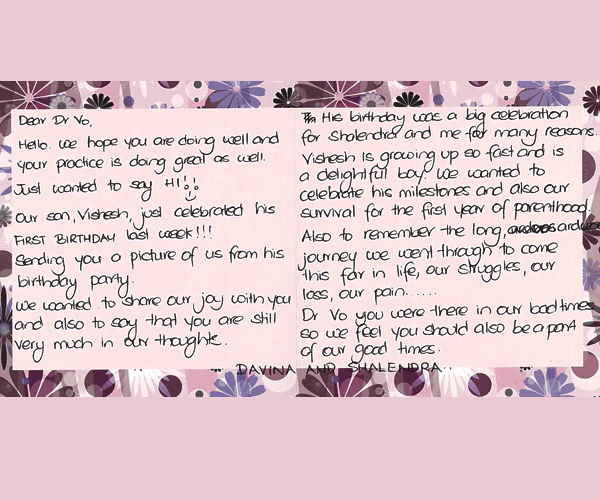 Dear Dr Vo,
Hello. We hope you are doing well and
your practice is doing great as well.
Just wanted to say HI!!
Our son, Vishesh, just celebrated his
FIRST BIRTHDAY last week!!!
Sending you a picture of us from his
birthday party.
We wanted to share our joy with you
and also to say that you are still
very much in our thoughts.
His birthday was a big celebration
for Shalendra and me for many reasons.
Vishesh is growing up so fast and is
a delightful boy. We wanted to
celebrate his milestones and also our
survival for the first year of parenthood.
Also to remember the long,
journey we went through to come
this far in life, our struggles, our
loss, our pain......
Dr Vo you were there in our bad times
so we feel you should also be a part
of our good times.
DAVINA AND SHALENDRA..